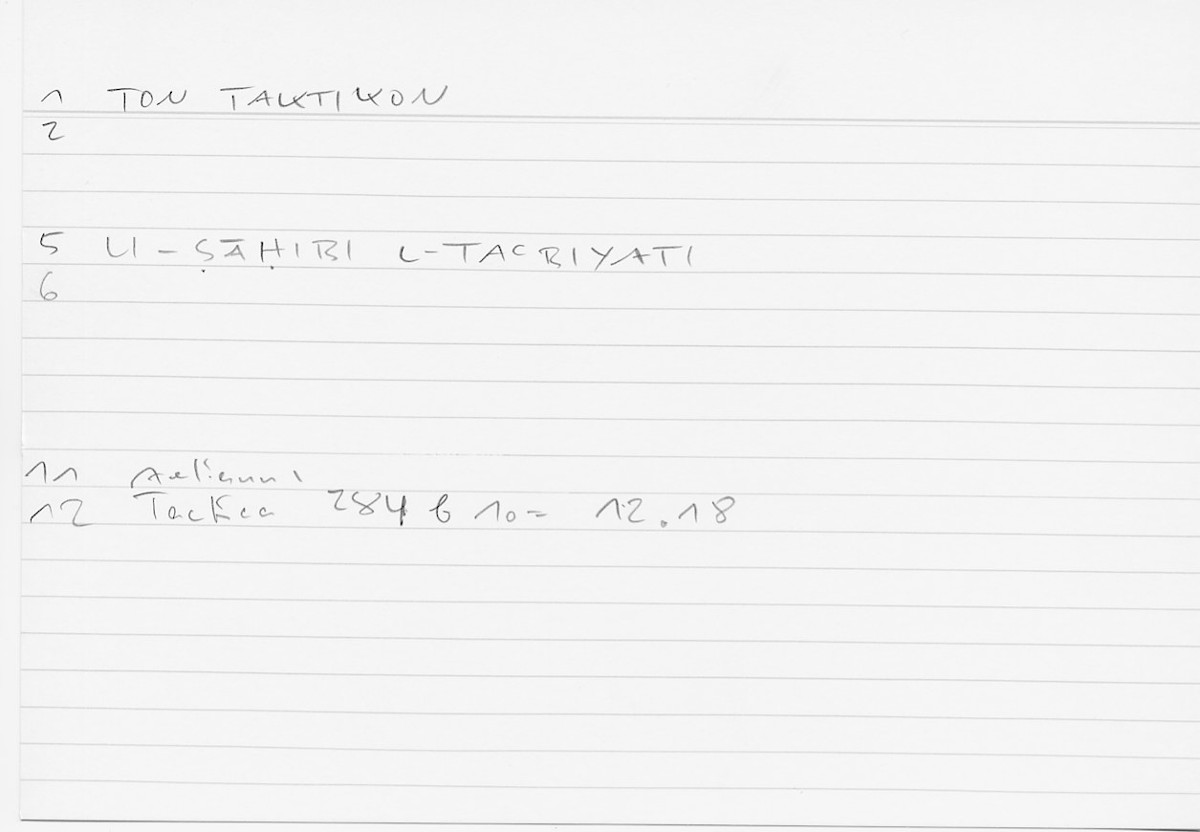 1 TON TAKTIKON
2
5 LI-ṢĀḤIBI L-TAcBIYATI
6
11 Aelianus
12 Tactica 284 b 10 = 12.18